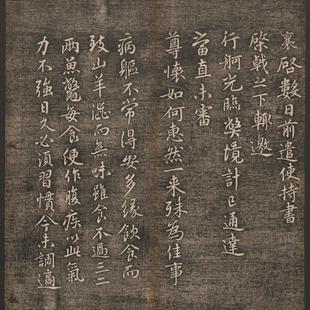 襄啓數日前遣使持書
棨戟之下輒邀
行舸光臨獘境計已通達
當直未審
尊懷如何惠然一来殊為佳事
病軀不常得安多緣飲食而
致山羊澁而無味雖食不過三二
兩魚鼈每食便作腹疾以此氣
力不強日久必須習慣今未調適